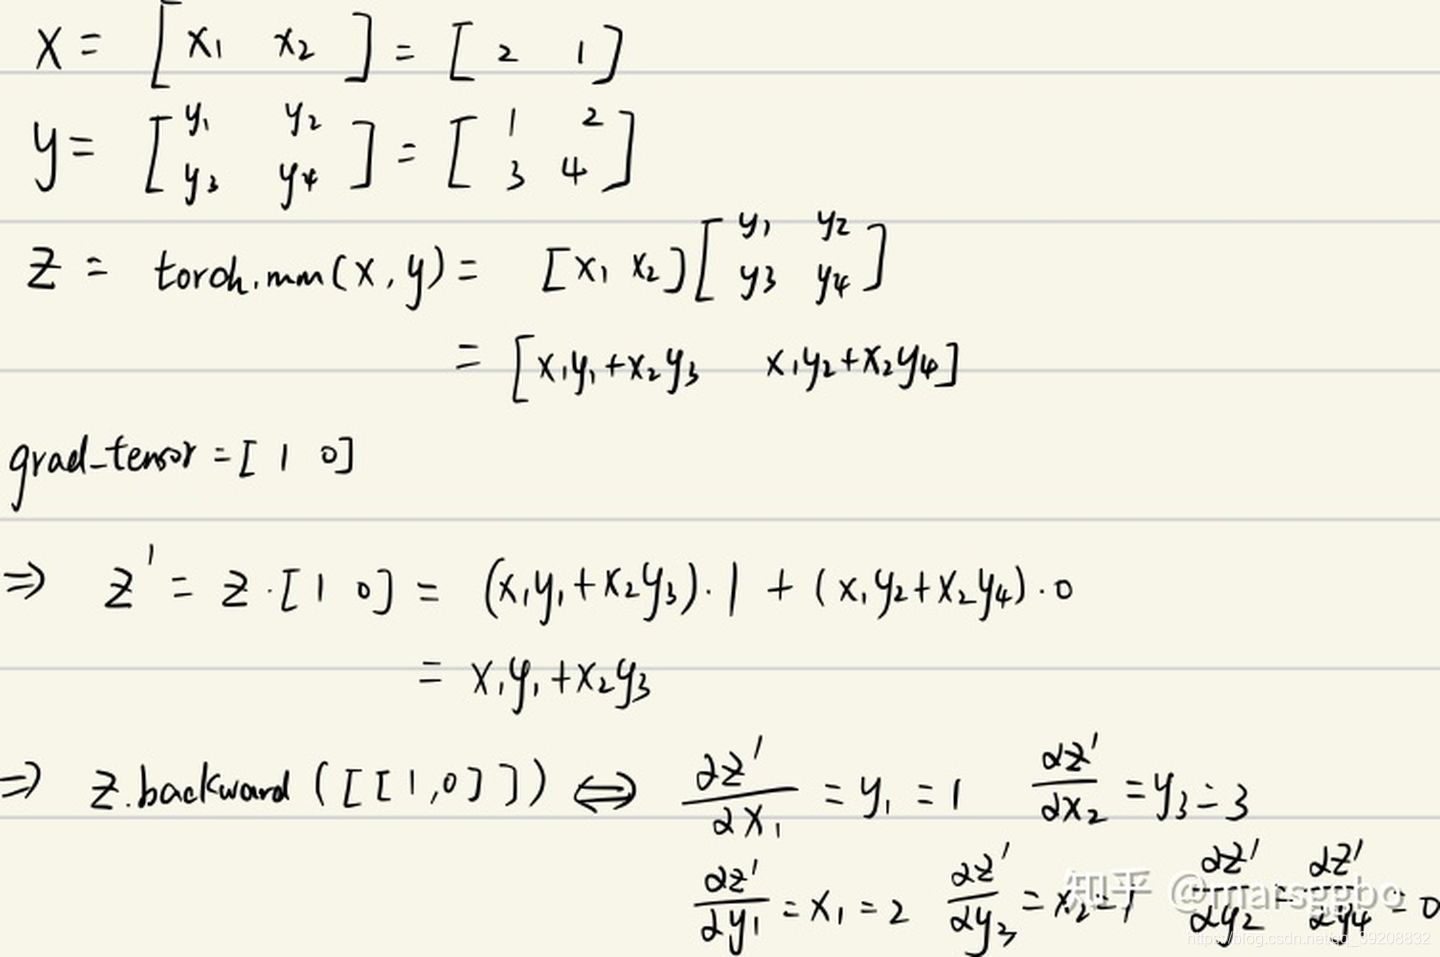 x = [ x₁ x₂ ] = [ 2 1 ]
y = [ y₁ y₂ ] = [ 1 2 ]
[ y₃ y₄ ] [ 3 4 ]
z = torch.mm(x, y) = [x₁ x₂] [ y₁ y₂ ]
[ y₃ y₄ ]
= [x₁y₁+x₂y₃ x₁y₂+x₂y₄]
grad_tensor = [ 1 0 ]
⇒ z' = z · [ 1 0 ] = (x₁y₁+x₂y₃)·1 + (x₁y₂+x₂y₄)·0
= x₁y₁+x₂y₃
⇒ z.backward([[1,0]]) ⇔ ∂z'/∂x₁ = y₁ = 1 ∂z'/∂x₂ = y₃ = 3
∂z'/∂y₁ = x₁ = 2 ∂z'/∂y₃ = x₂ = 1 ∂z'/∂y₂ = ∂z'/∂y₄ = 0
知乎 @marsggbo